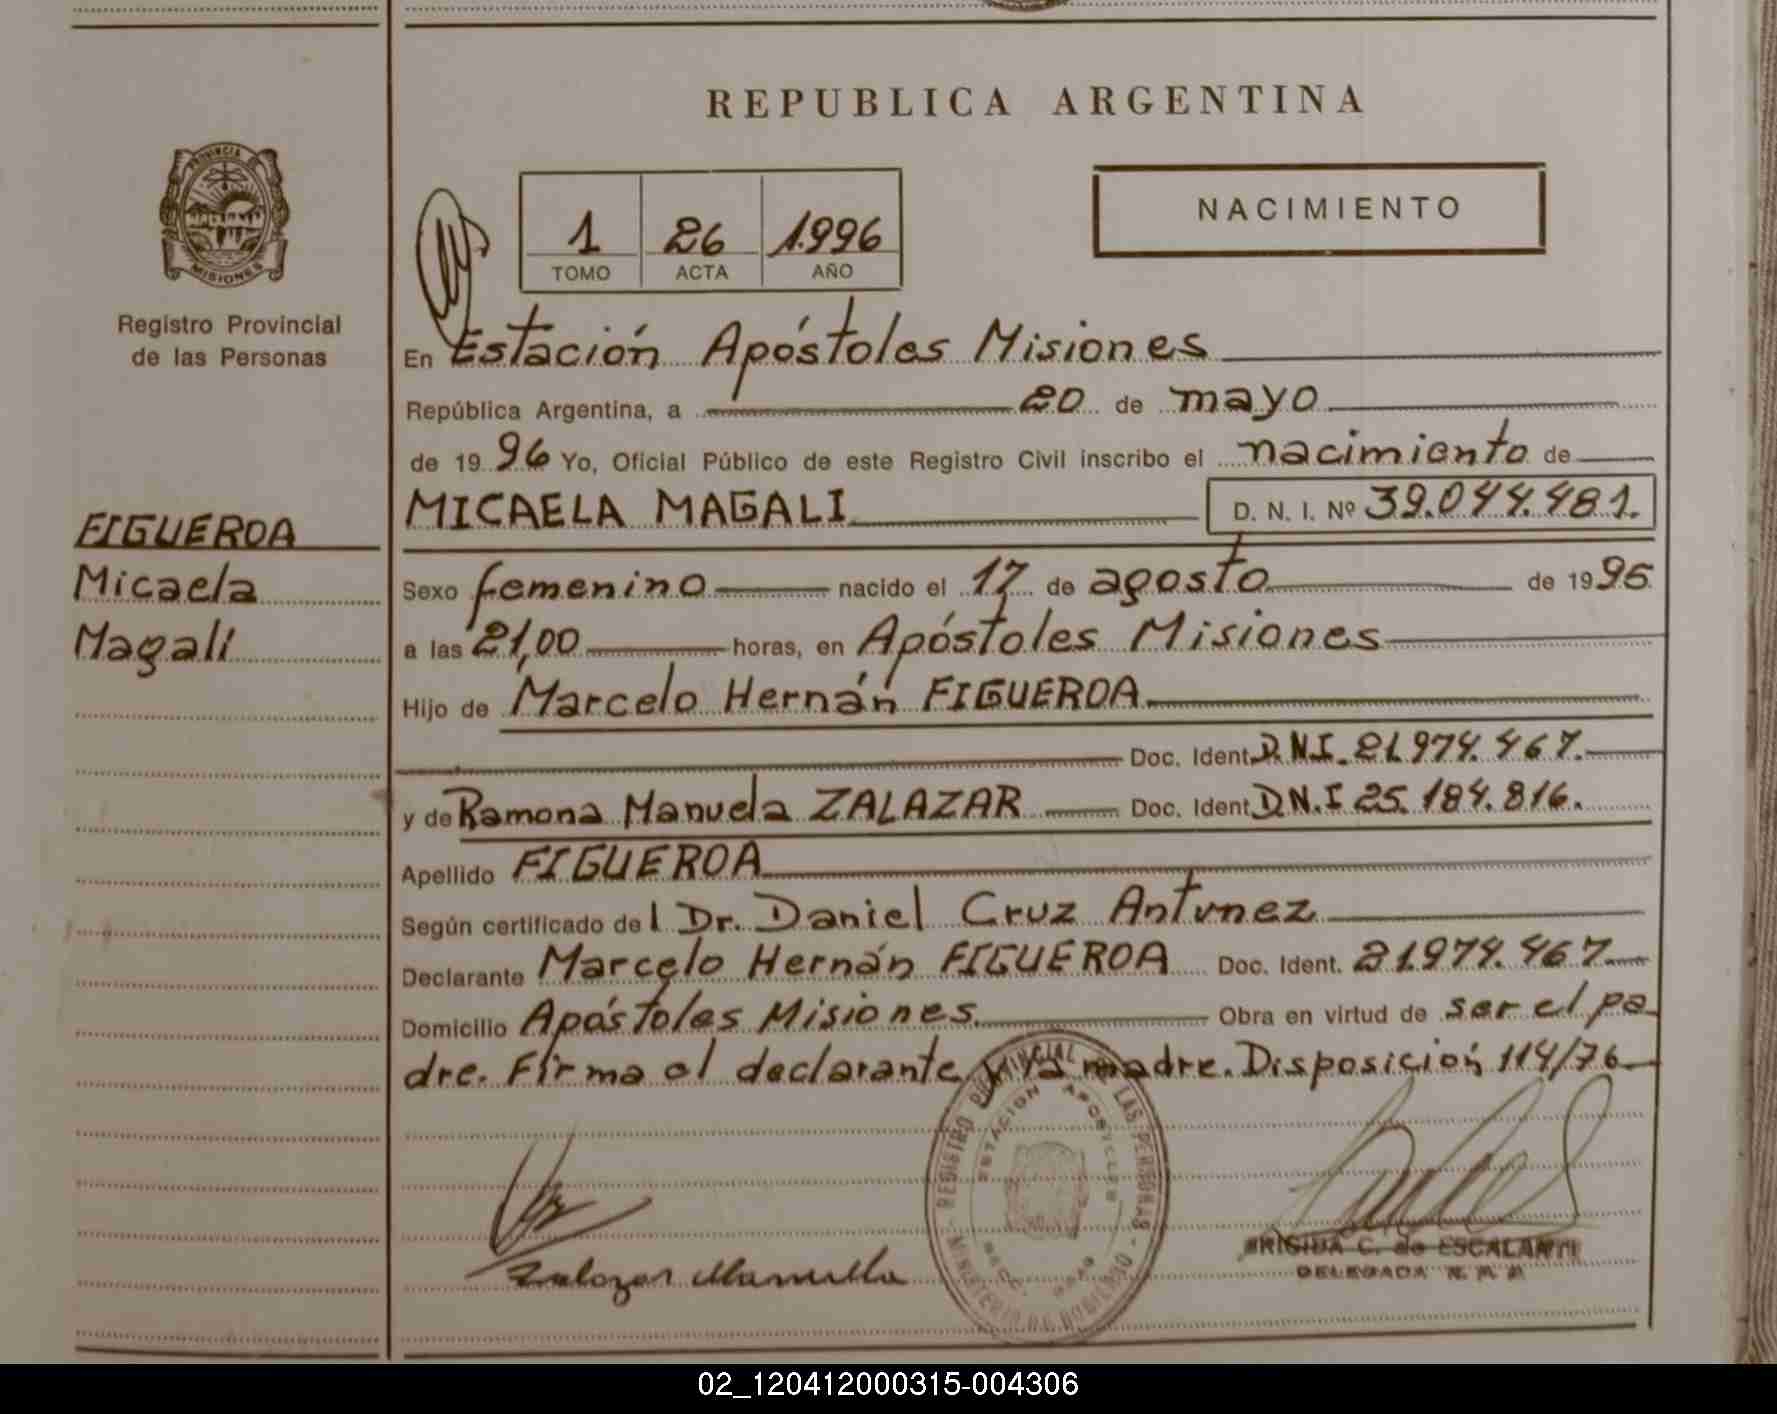 REPUBLICA ARGENTINA
PROVINCIA DE
MISIONES
Registro Provincial
de las Personas
NACIMIENTO
1 26 1.996
TOMO ACTA AÑO
En Estación Apóstoles Misiones
República Argentina, a 20 de mayo
de 1996 Yo, Oficial Público de este Registro Civil inscribo el nacimiento de
MICAELA MAGALI D. N. I. Nº 39.044.481.
FIGUEROA
Micaela
Magalí
Sexo femenino nacido el 17 de agosto de 1995
a las 21,00 horas, en Apóstoles Misiones
Hijo de Marcelo Hernán FIGUEROA
Doc. Ident. D.N.I. 21.974.467.
y de Ramona Manuela ZALAZAR Doc. Ident. D.N.I 25.184.816.
Apellido FIGUEROA
Según certificado del Dr. Daniel Cruz Antunez
Declarante Marcelo Hernán FIGUEROA Doc. Ident. 21.974.467.
Domicilio Apóstoles Misiones Obra en virtud de ser el pa
dre. Firma el declarante y la madre. Disposición 114/76
REGISTRO PROVINCIAL DE LAS PERSONAS - MINISTERIO DE GOBIERNO -
ESTACION APOSTOLES
Zalazar Manuela
BRIGIDA C. de ESCALANTE
DELEGADA
02_120412000315-004306